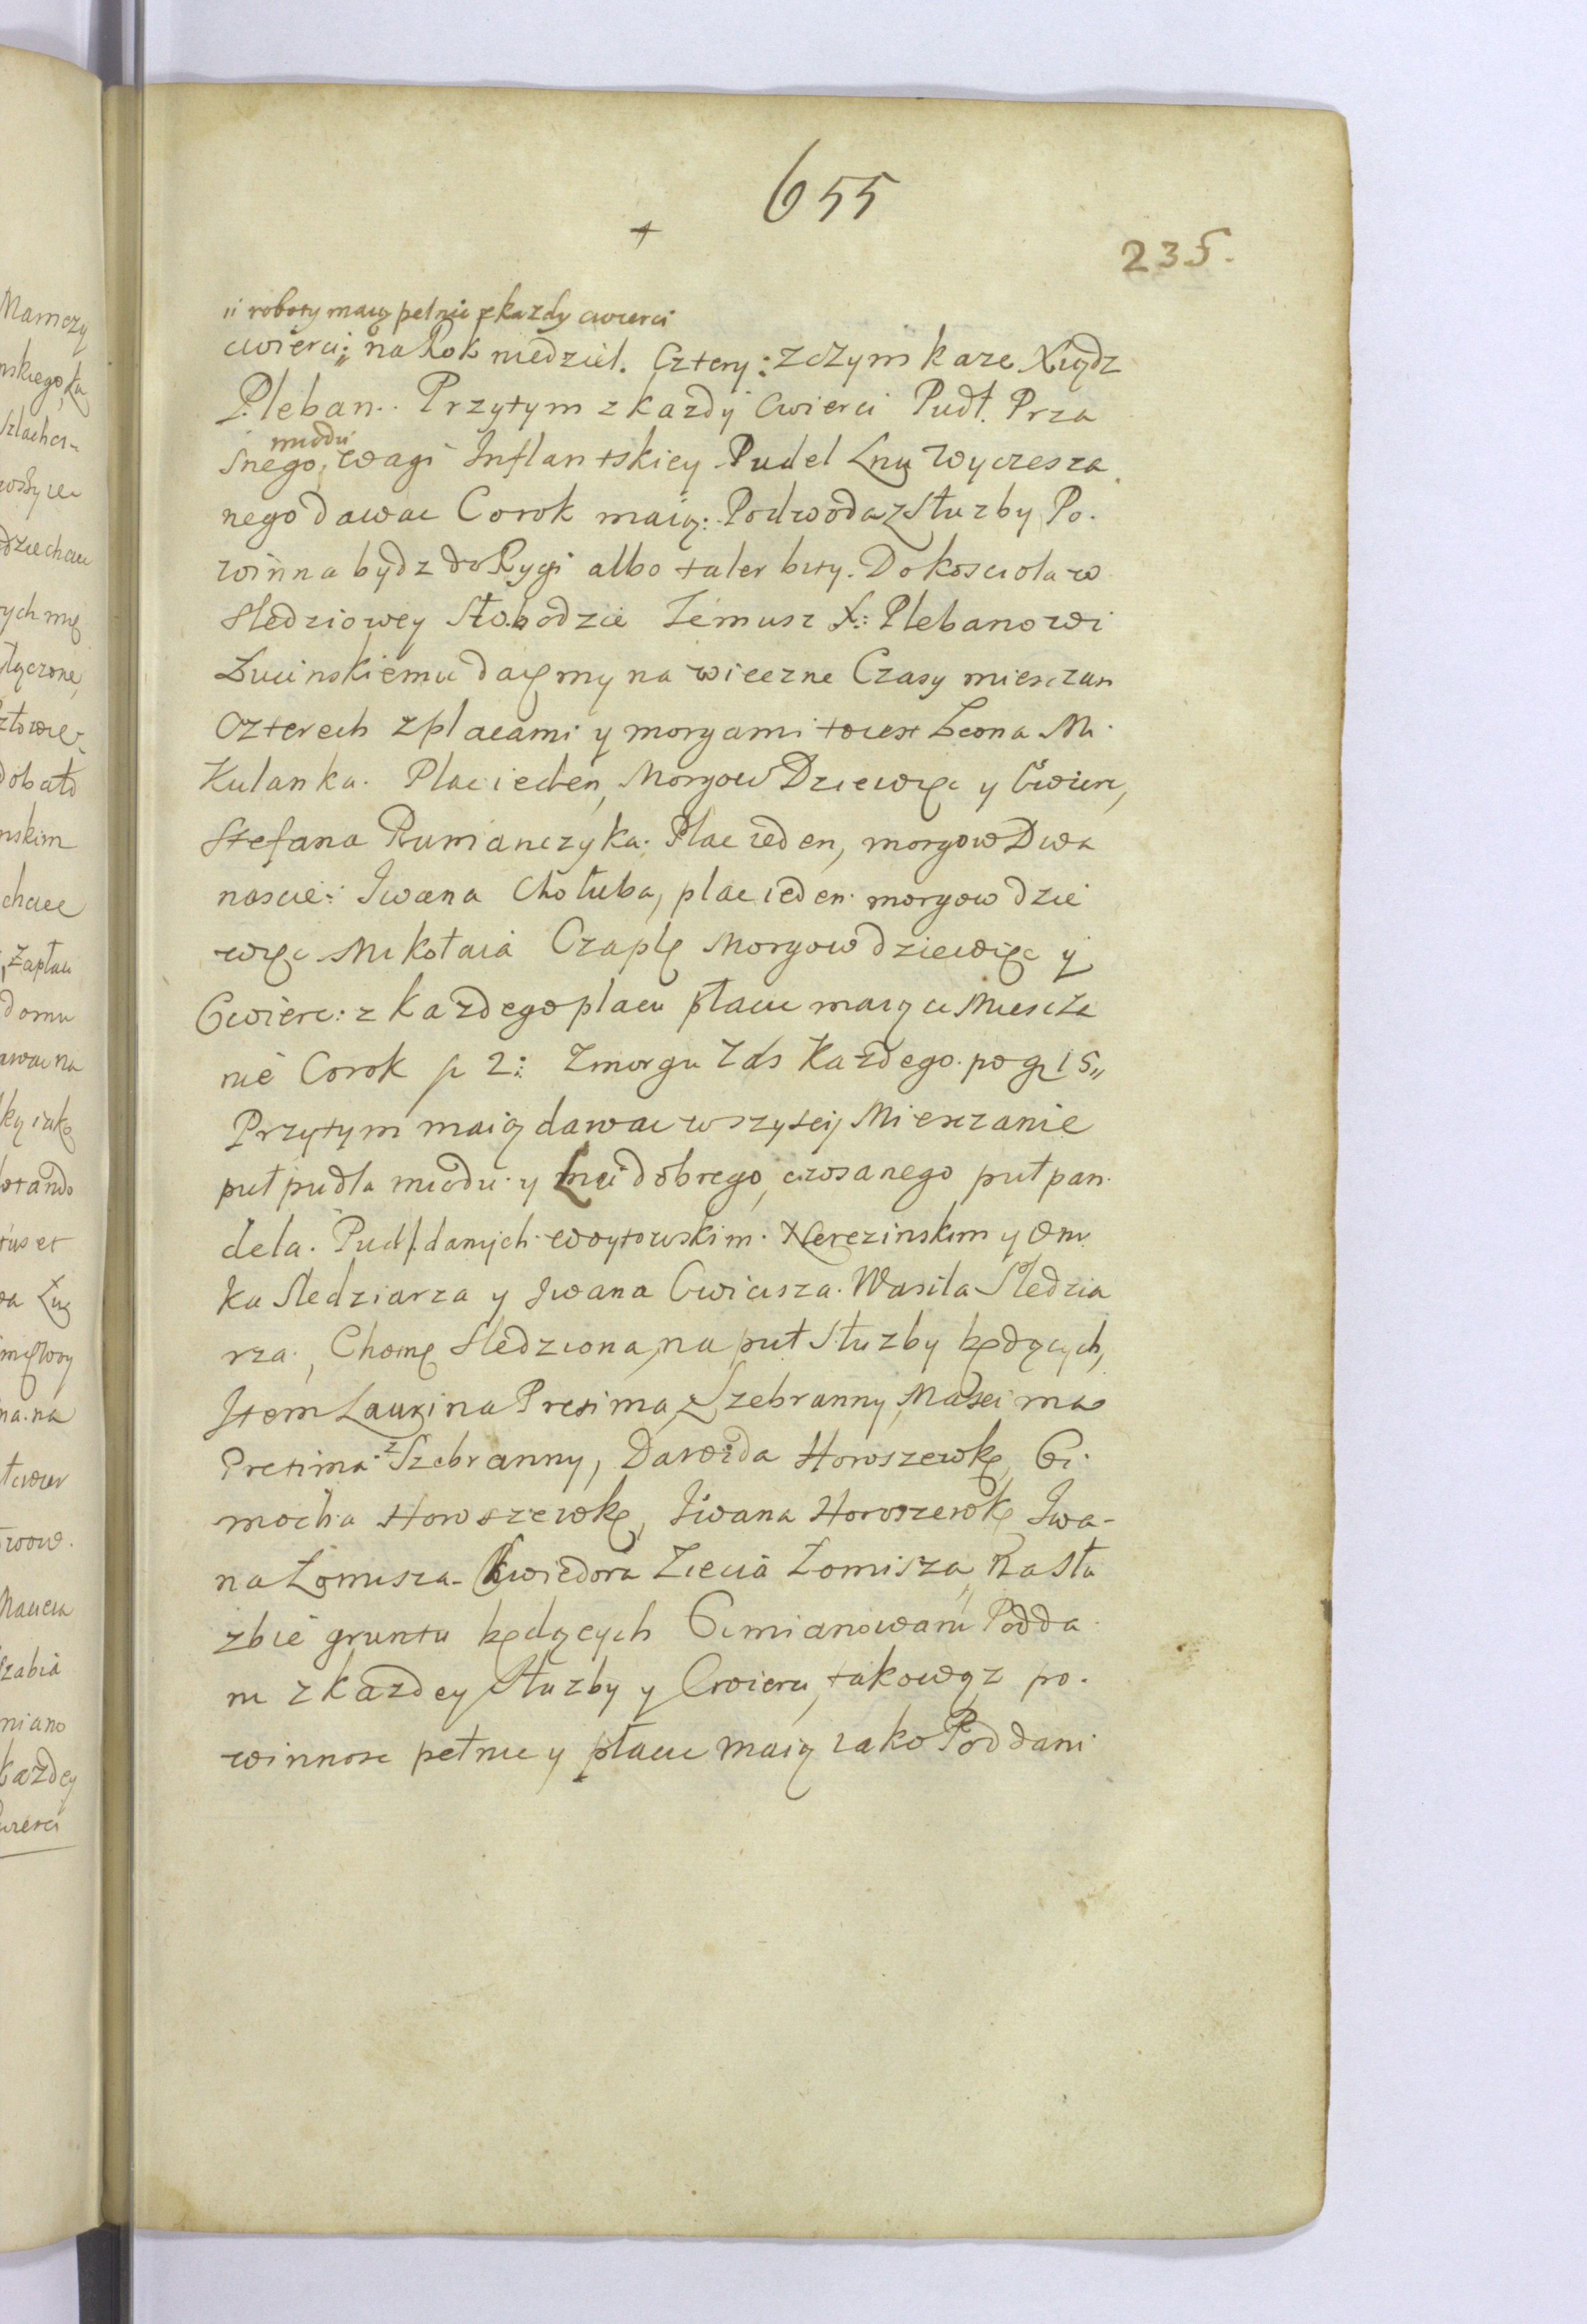 655
+
235.
" roboty maią pełnic z kazdy cwierci
cwierci: " na Rok niedziel. Cztery: zczym kaze Xiądz
Pleban.. Przytym z kazdy Cwierci Pudł. Prza
miodu
snego, wagi Inflantskiey Pudel Lnu wyczesza
nego dawac Corok maią: Podwoda z Słuzby Po.
winna bydz do Rygi albo taler bity. Do koscioła w
Sledziowey Słobodzie Temusz X: Plebanowi
Lucinskiemu daięmy na wieczne Czasy miesczan
Czterech z placami y morgami toiest Leona Mi
Kulanka. Plac ieden, Morgow Dziewięc y Cwierc,
Stefana Rumianczyka. Plac ieden, morgow Dwa
nascie: Iwana Chołuba, plac ieden. morgow dzie
więc Mikołaia Czaplę Morgow dziewięc y
Cwierc: z kazdego placu płacic maią ci Miescza
nie Corok f. 2: z morgu Zas kazdego. po g 15"
Przytym maią dawac wszyscy Miesczanie
puł pudła miodu y Lnu dobrego, czosanego puł pan
dela. Pudł. danych woytowskim. Nerezinskim y Om
ka Sledziarza y Iwana Cwicisza. Wasila Sledzia
rza, Chomę Sledziona, na puł Słuzby będących,
Item Laurina Presima z Szebranny, Maxima
Presima z Szebranny, Dawida Horoszewkę, Ti
mocha Horoszewkę, Iwana Horoszewkę Iwa-
na Łomisza. Chwiedora Ziecia Łomisza, Na słu
zbie gruntu będących Ci mianowani Podda
ni z kazdey Słuzby y Cwierci, takowąz po.
winnosc pełnic y płacic maią iako Poddani